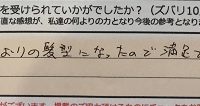 を受けられていかがでしたか？（ズバリ10
直な感想が、私達の何よりの力となり今後の参考となりま
よりの髪型になったので満足で